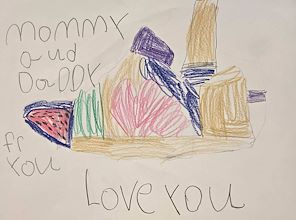 mommy
aud
DaDDY
fr
You
Love You